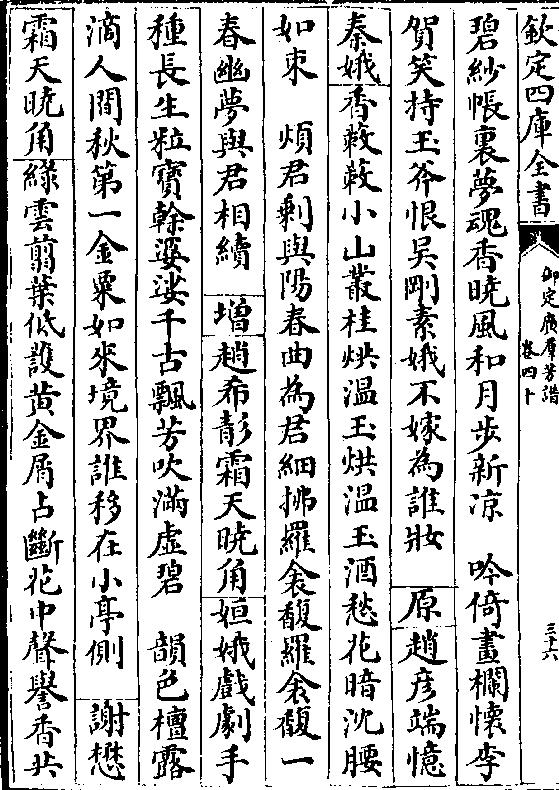 欽定四庫全書
御定廣羣芳譜
卷四十
三十六
碧紗帳裏夢魂香曉風和月步新凉　吟倚畫欄懷李
賀笑持玉斧恨吳剛素娥不嫁為誰妝　原　趙彥端憶
秦娥　香蔌蔌小山叢桂烘温玉烘温玉酒愁花暗沈腰
如束　煩君剩與陽春曲為君細拂羅衾馥羅衾馥一
春幽夢與君相續　增　趙希㣍霜天曉角　姮娥戲劇手
種長生粒寶榦婆娑千古飄芳吹滿虚碧　韻色檀露
滴人間秋第一金粟如來境界誰移在小亭側　謝懋
霜天曉角　綠雲剪葉低護黄金屑占斷花中聲譽香共